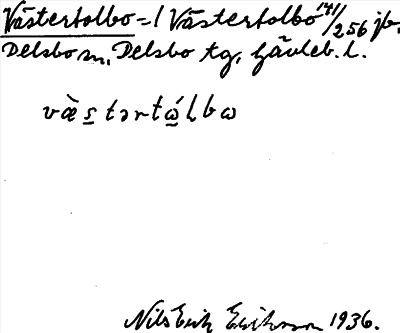 Västertolbo = 1 Västertolbo 141/256 jb.
Delsbo sn, Delsbo tg, Gävleb. l.
væ̀stərtώlbω
Nils Erik Erikson 1936.